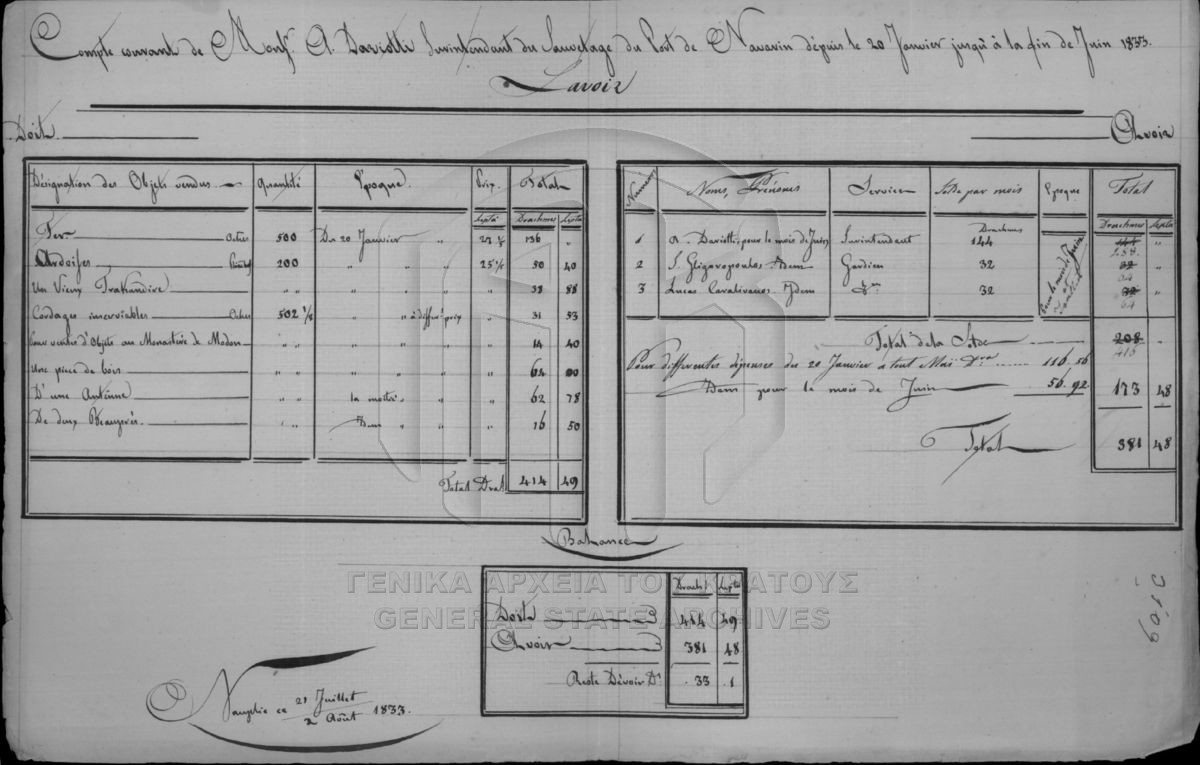 Compte courant de Monsr. A. Dariotti Surintendant du Sauvetage du Port de Navarin dépuis le 20 Janvier jusqu'à la fin de Juin 1833.
Savoir
Doit.
Avoir
Désignation des Objets vendus. Quantité Epoque. Prix. Total
Lepta Drachmes Lepta
Fer. Ocres 500 Du 20 Janvier " 27 ½ 136 "
Ardoises 200 " " " 25 ½ 50 40
Un Vieux Trakandire " " " " 38 88
Cordages inserviables Ocres 502 1/8 " " à differts prix " 31 53
Pour ventes d'Objets au Monastère de Modon " " " " " 14 40
Une pièce de bois " " " " " 64 00
D'une Anténne " " la moitié " " 62 78
De deux Beauprés. " " Idem " " " 16 50
Total Drach 414 49
Numéros Noms, Prénoms Service Solde par mois Epoque Total
Drachmes Drachmes Lepta
1 A. Dariotti, pour le mois de Juin Surintendant 144 288 "
2 S. Gligoropoulos Idem Gardien 32 32 64 "
3 Lucas Cavalivanos Idem Idem 32 32 64 "
Total de la Solde 208 416
Pour differentes dépenses du 20 Janvier à tout Mai Dra 116 56
Idem pour le mois de Juin 56 92 173 48
Total 381 48
Balance
ΓΕΝΙΚΑ ΑΡΧΕΙΑ ΤΟΥ ΚΡΑΤΟΥΣ
GENERAL STATE ARCHIVES
Drachs Lepta
Doit 414 49
Avoir 381 48
Reste Dévoir Ds. 33 1
Nauplie ce 21 Juillet / 2 Août 1833.